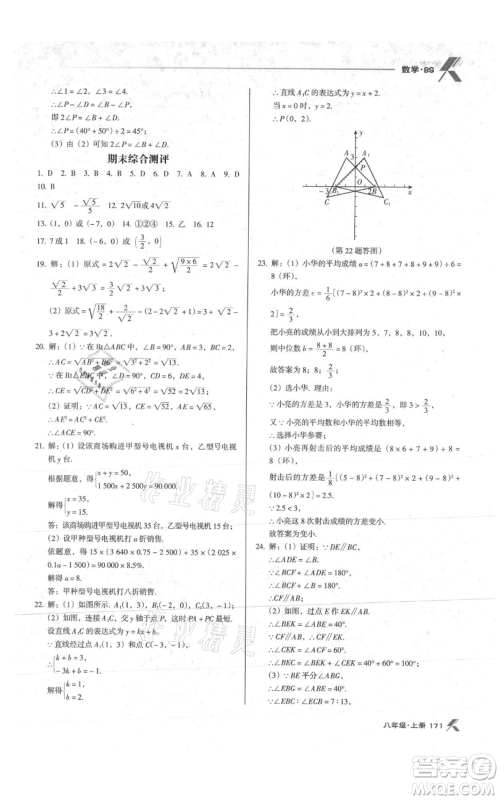 数学·BS
∴∠1=∠2,∠3=∠4,
∴∠2-∠3=∠1-∠4,
∴∠P-∠D=∠B-∠P,
即2∠P=∠B+∠D,
∴∠P=(40°+50°)÷2=45°.
(3)由(2)可知:∠P=(∠B+∠D)÷2.
期末综合测评
1. D 2. A 3. A 4. C 5. D 6. B 7. A 8. A 9. D
10. B
11. √5 -√5/5 12. 2√2或4√2
13. (1,0)或(-1,0) 14. ①②④ 15. 乙 16. 12
17. 7或1 18. (-6,0)或(3/2,0)
19. 解:(1)原式=2√2-√2/2+√(9×6/2)=2√2-√2/2
+3√3=3√2/2+3√3.
(2)原式=√(18/2)+2√2-2√2=√9+2√2-
3+2√2=3.
20. 解:(1)∵在Rt△ABC中,∠B=90°,
∴AC=√(AB²+BC²)=√(3²+2²)=√13,
∵在Rt△EDC中,∠D=90°,
∴CE=√(CD²+DE²)=√(6²+4²)=√52=2√13.
(2)证明:∵AC=√13,CE=2√13,AE=√65,
∴AE²=AC²+CE²,
∴∠ACE=90°.
21. 解:(1)设该商场购进甲型号电视机x台,乙型号电
视机y台.
根据题意,得{x+y=50,
1 500x+2 500y=90 000.
解得{x=35,
y=15.
答:该商场购进甲型号电视机35台,乙型号电视机15台.
(2)设甲种型号电视机打a折销售,
依题意,得15×(3 650×0.75-2 500)+35×(2 250×
0.1a-1 500)=90 000×8.5%,
解得a=8.
答:甲种型号电视机打八折销售.
22. 解:(1)如图所示. A₁(1,3),B₁(-2,0),C₁(3,-1).
(2)如图所示,连接A₁C,交y轴于点P,连接PA,
设直线A₁C的表达式为y=kx+b.
∵A₁(1,3)和C(-3,-1),
∴{k+b=3,
-3k+b=-1,
解得{k=1,
b=2,
∴直线A₁C的表达式为y=x+2,
当x=0时,y=2,
∴P(0,2).
y
A
A₁
3
P
B
O
x
C
C₁
(第22题答图)
23. 解:(1)小华的平均成绩a=(7+8+7+8+9+9)÷6=
8(环),
小华的方差c=1/6[(7-8)²×2+(8-8)²×2+(9-
8)²×2]=2/3,
把小亮的成绩从小到大排列为5,7,8,8,10,10,
则中位数b=8+8/2=8(环),
故答案为8;8;2/3.
(2)小华.
理由:∵小亮的方差是3,小华的方差是2/3,即3>2/3,
又∵小亮的平均成绩和小华的平均成绩相等,
∴选择小华参赛.
(3)小亮再射击后的平均成绩是(8×6+7+9)÷8=
8(环),
射击后的方差是1/8[(5-8)²+(7-8)²×2+(8-8)²
×2+(9-8)²+(10-8)²×2]=2.5.
∵2.5<3,
∴小亮这8次射击成绩的方差变小.
故答案为变小.
24. 解:(1)证明:∵DE∥BC,
∴∠ADE=∠ABC.
∵∠BCF+∠ADE=180°,
∴∠BCF+∠ABC=180°,
∴CF∥AB.
(2)如图,过点E作EK∥AB,
∴∠BEK=∠ABE=40°.
∵CF∥AB,
∴CF∥EK,
∴∠CEK=∠ACF=60°,
∴∠BEC=∠BEK+∠CEK=40°+60°=100°.
(3)∵BE平分∠ABG,
∴∠EBG=∠ABE=40°.
∵∠EBC:∠ECB=7:13,
作业精灵
作业精灵
八年级·上册 171